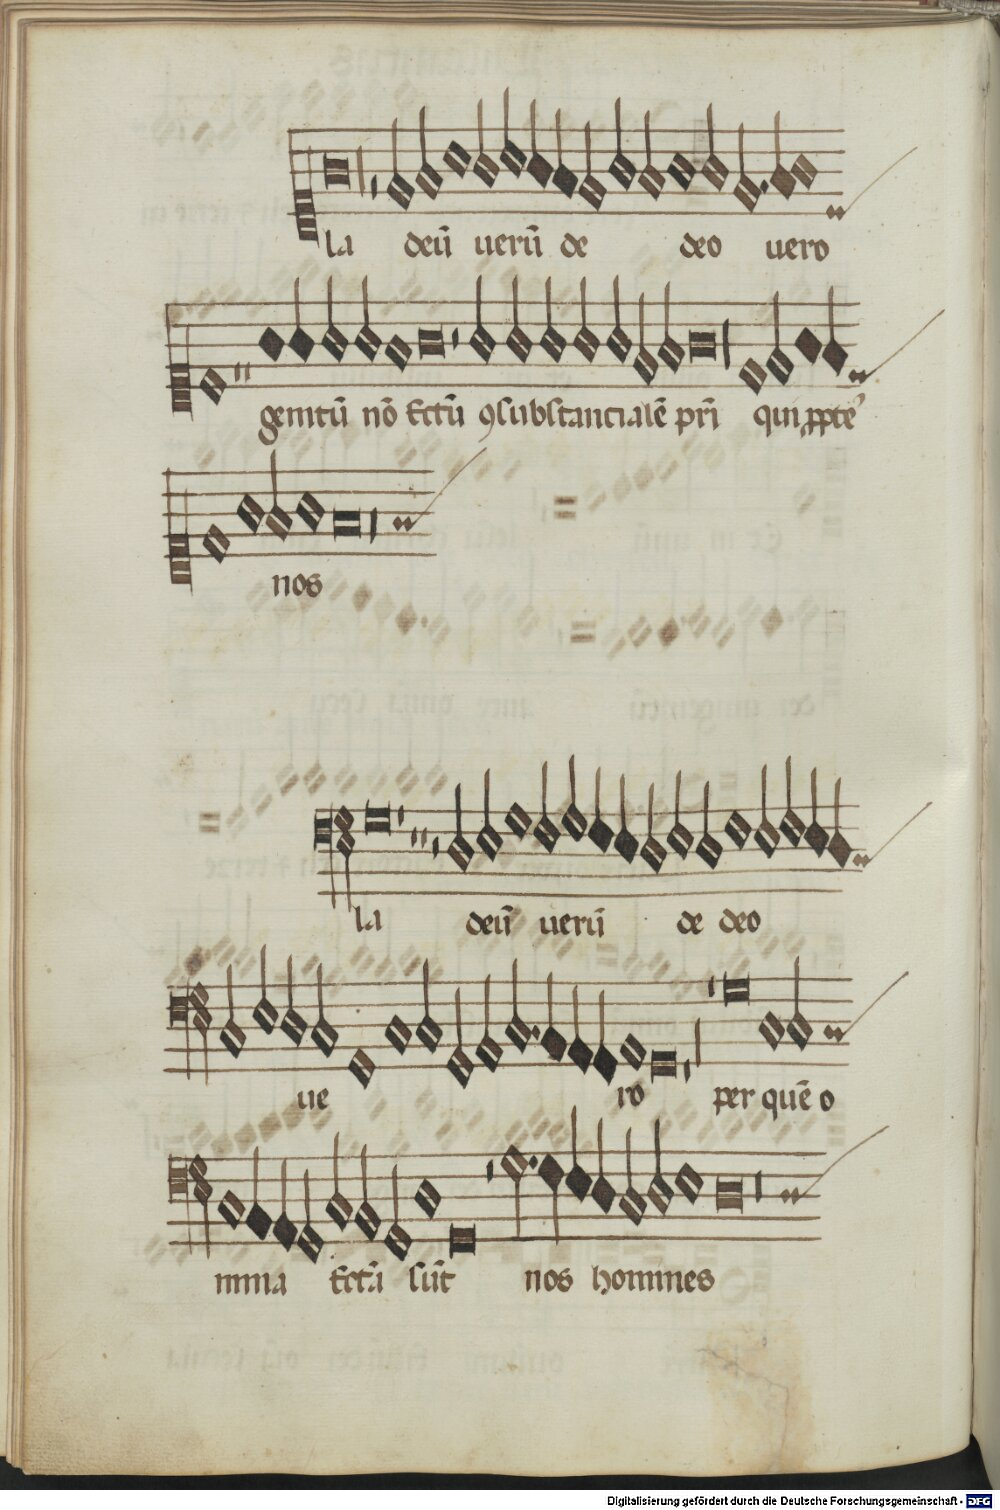 la deū uerū de deo uero
genitū nō fctū ꝯsubstancialē pr̄i qui ꝓpte᾽
nos
la deū uerū de deo
ue ro per quē o
mnia fctā sūt nos homines
Digitalisierung gefördert durch die Deutsche Forschungsgemeinschaft - DFG